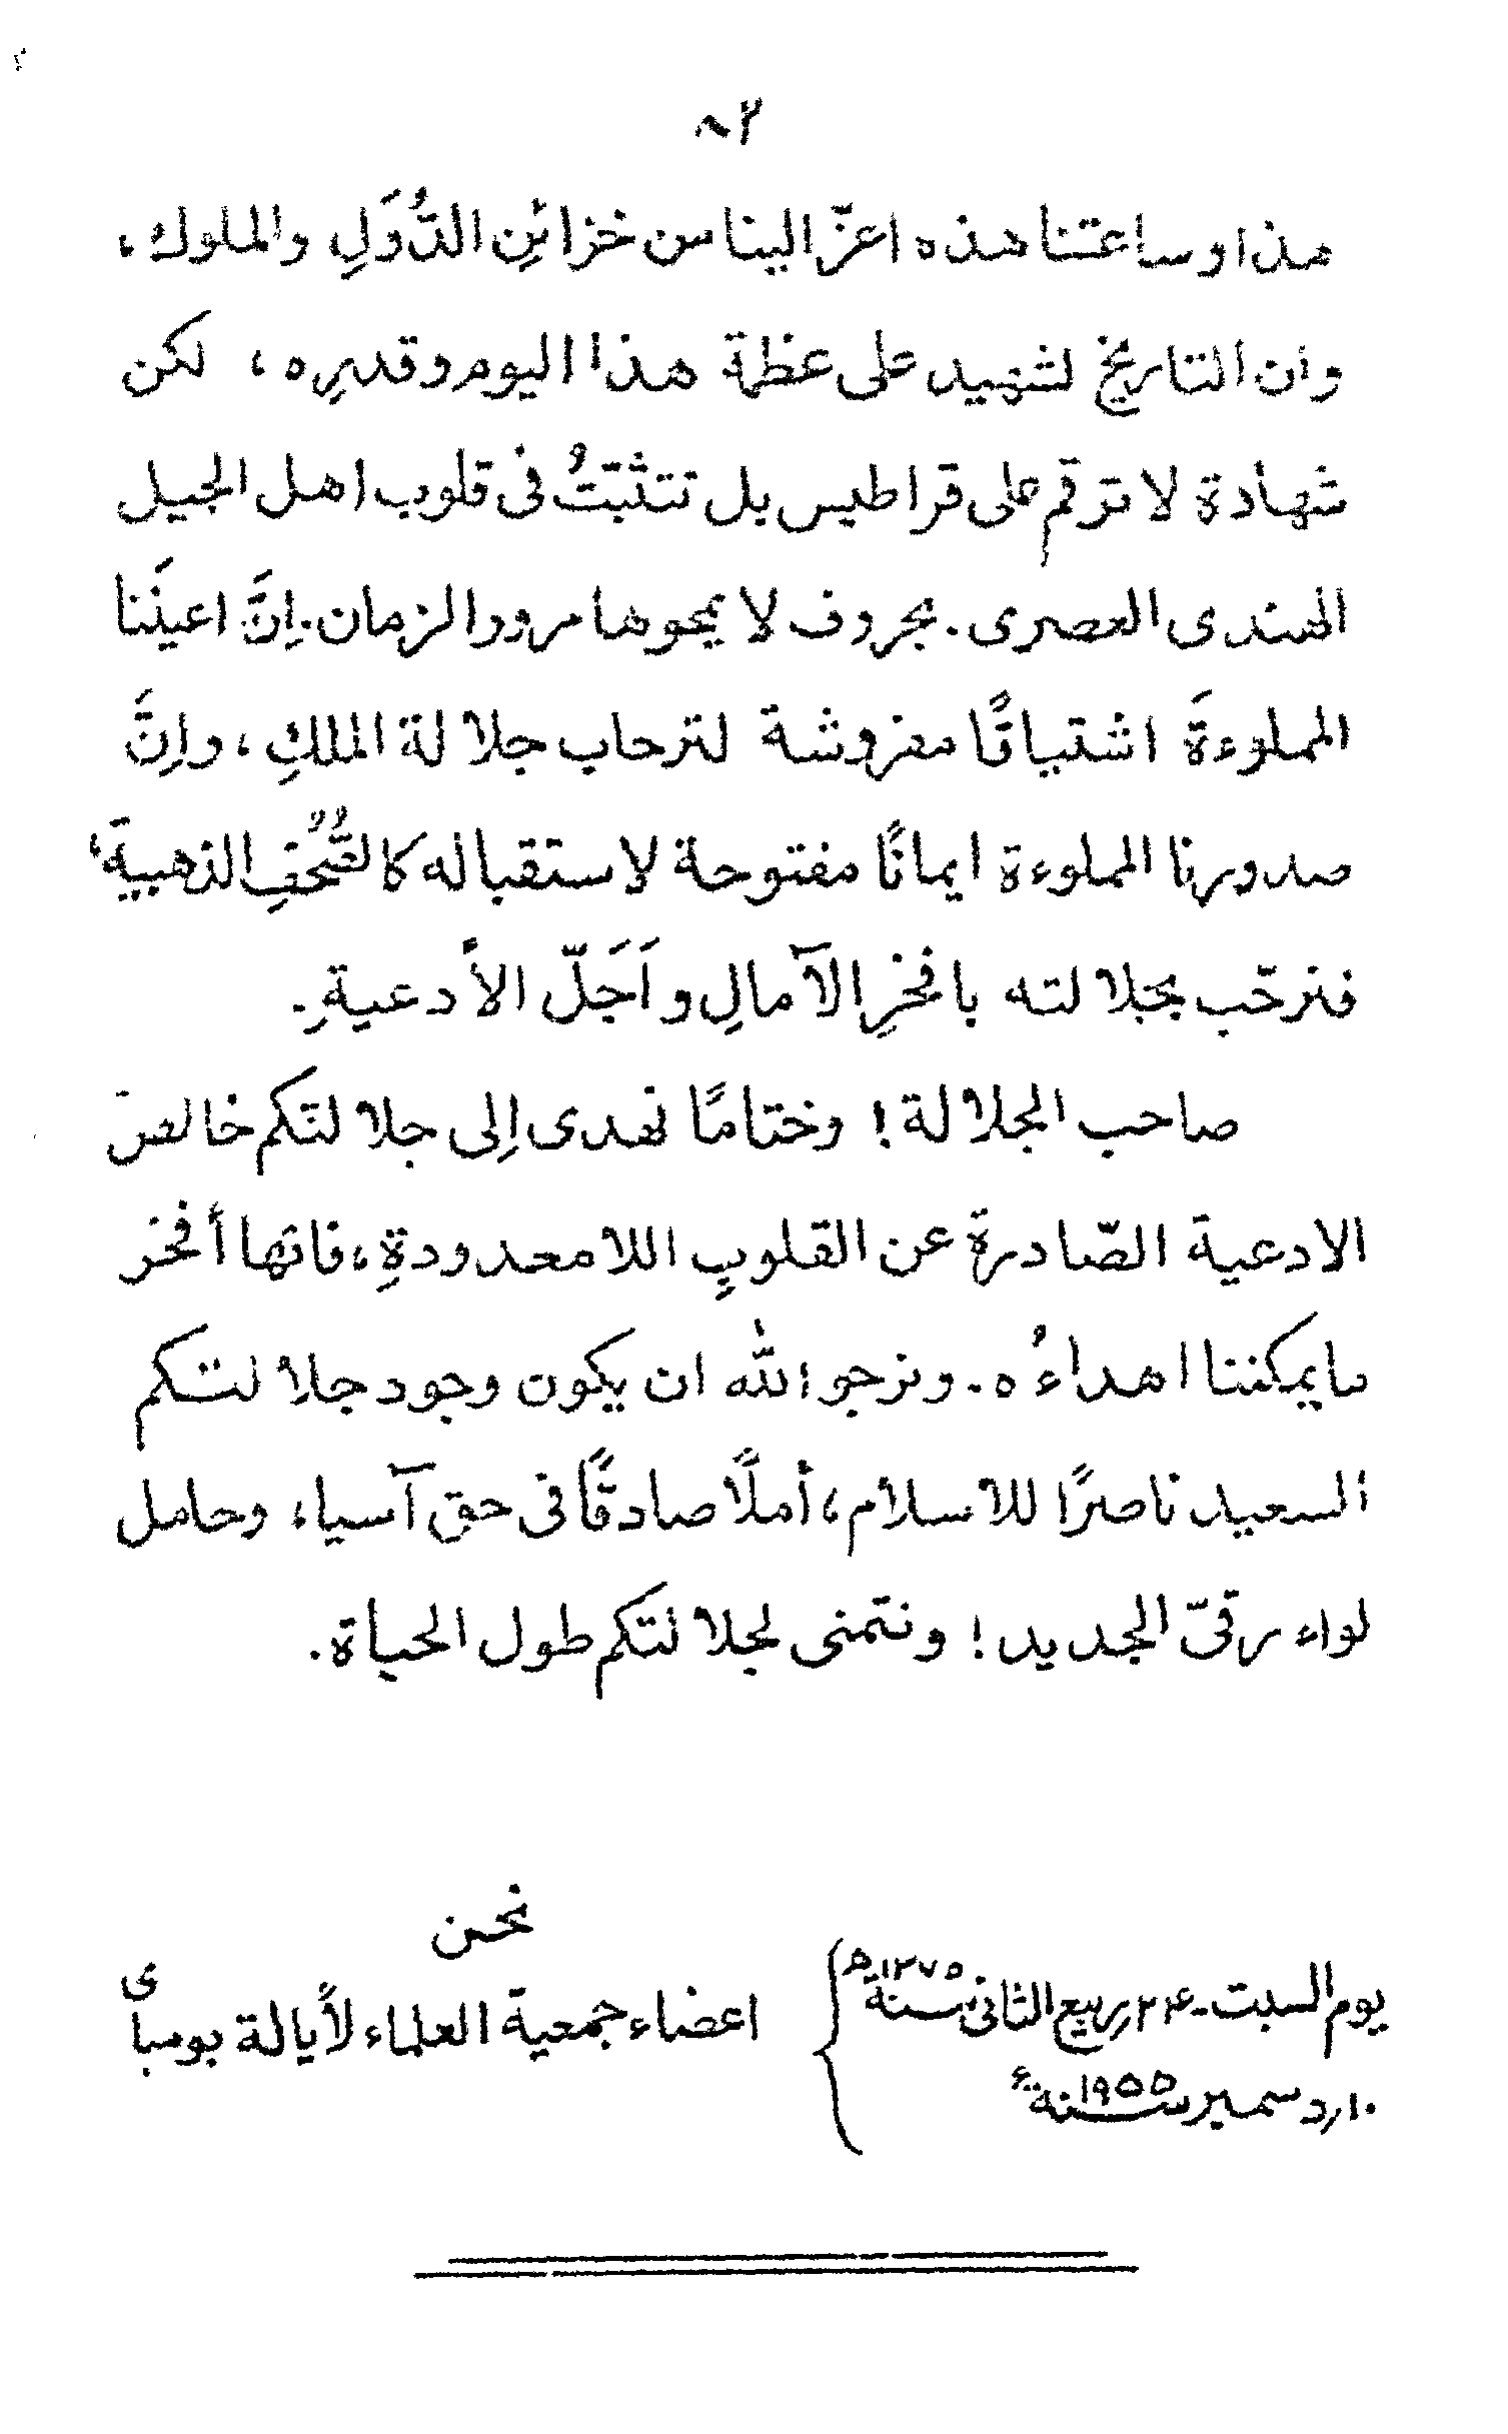 ٨٢
هذا وساعتنا هذه اعزّ الينا من خزائنِ الدُّوَلِ والملوك،
وان التاريخ لشهيد على عظمة هذا اليوم وقدرِه، لكن
شهادة لا ترقم على قراطيس بل تتثبّتُ فى قلوب اهل الجيل
الهندى العصرى. بحروف لا يمحوها مرور الزمان. اِنَّ اعينَنا
المملوءةَ اشتياقًا مفروشة لترحاب جلالة الملكِ، واِنَّ
صدورنا المملوءة ايمانًا مفتوحة لاستقباله كالتُّحُفِ الذهبيةِ،
فنرحّب بجلالته بافخرِ الآمالِ واَجَلّ الأدعيةِ.
صاحب الجلالة! وختامًا نهدى اِلى جلالتكم خالصَ
الادعية الصّادرةَ عن القلوبِ اللامعدودةِ، فانها أفخر
مايمكننا اهداءُه. ونرجو الله ان يكون وجود جلالتكم
السعيد ناصرًا للاسلام، أملًا صادقًا فى حق آسياء وحامل
لواء رقىّ الجديد! ونتمنى لجلالتكم طول الحياة.
نحن
اعضاء جمعية العلماء لأيالة بومباى
يوم السبت-٢٤ ربيع الثانى سنة ١٣٧٥ھ
١٠؍دسمبر سنة ١٩٥٥ء